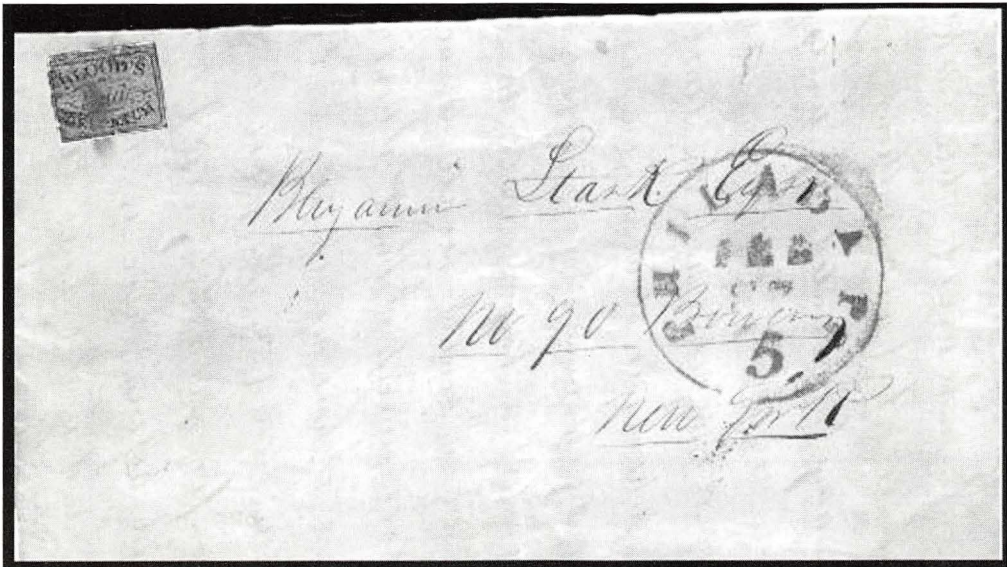 BLOOD'S
Benjamin Stark Esqr.
No 90 Bowery
New York
PHILADA. Pa.
FEB
5